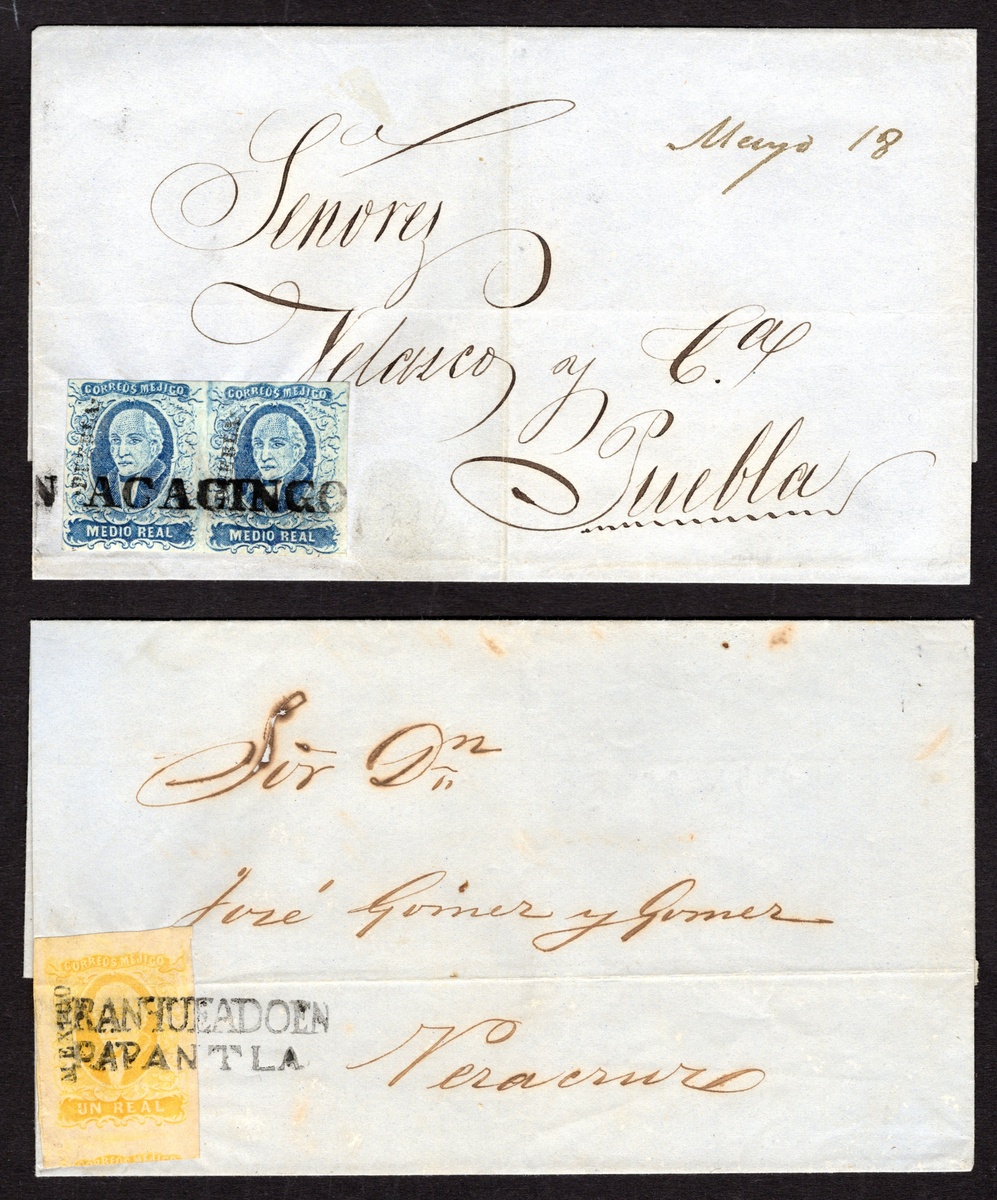 Mayo 18
Señores
Velasco y Cª
Puebla
CORREOS MEJICO
CORREOS MEJICO
PUEBLA
PUEBLA
N ACAGINGO
MEDIO REAL
MEDIO REAL
Sor Dn
José Gómez y Gomez
Veracruz
CORREOS MEJICO
MEXICO
FRANQUEADO EN
PAPANTLA
UN REAL
CORREOS MEJICO